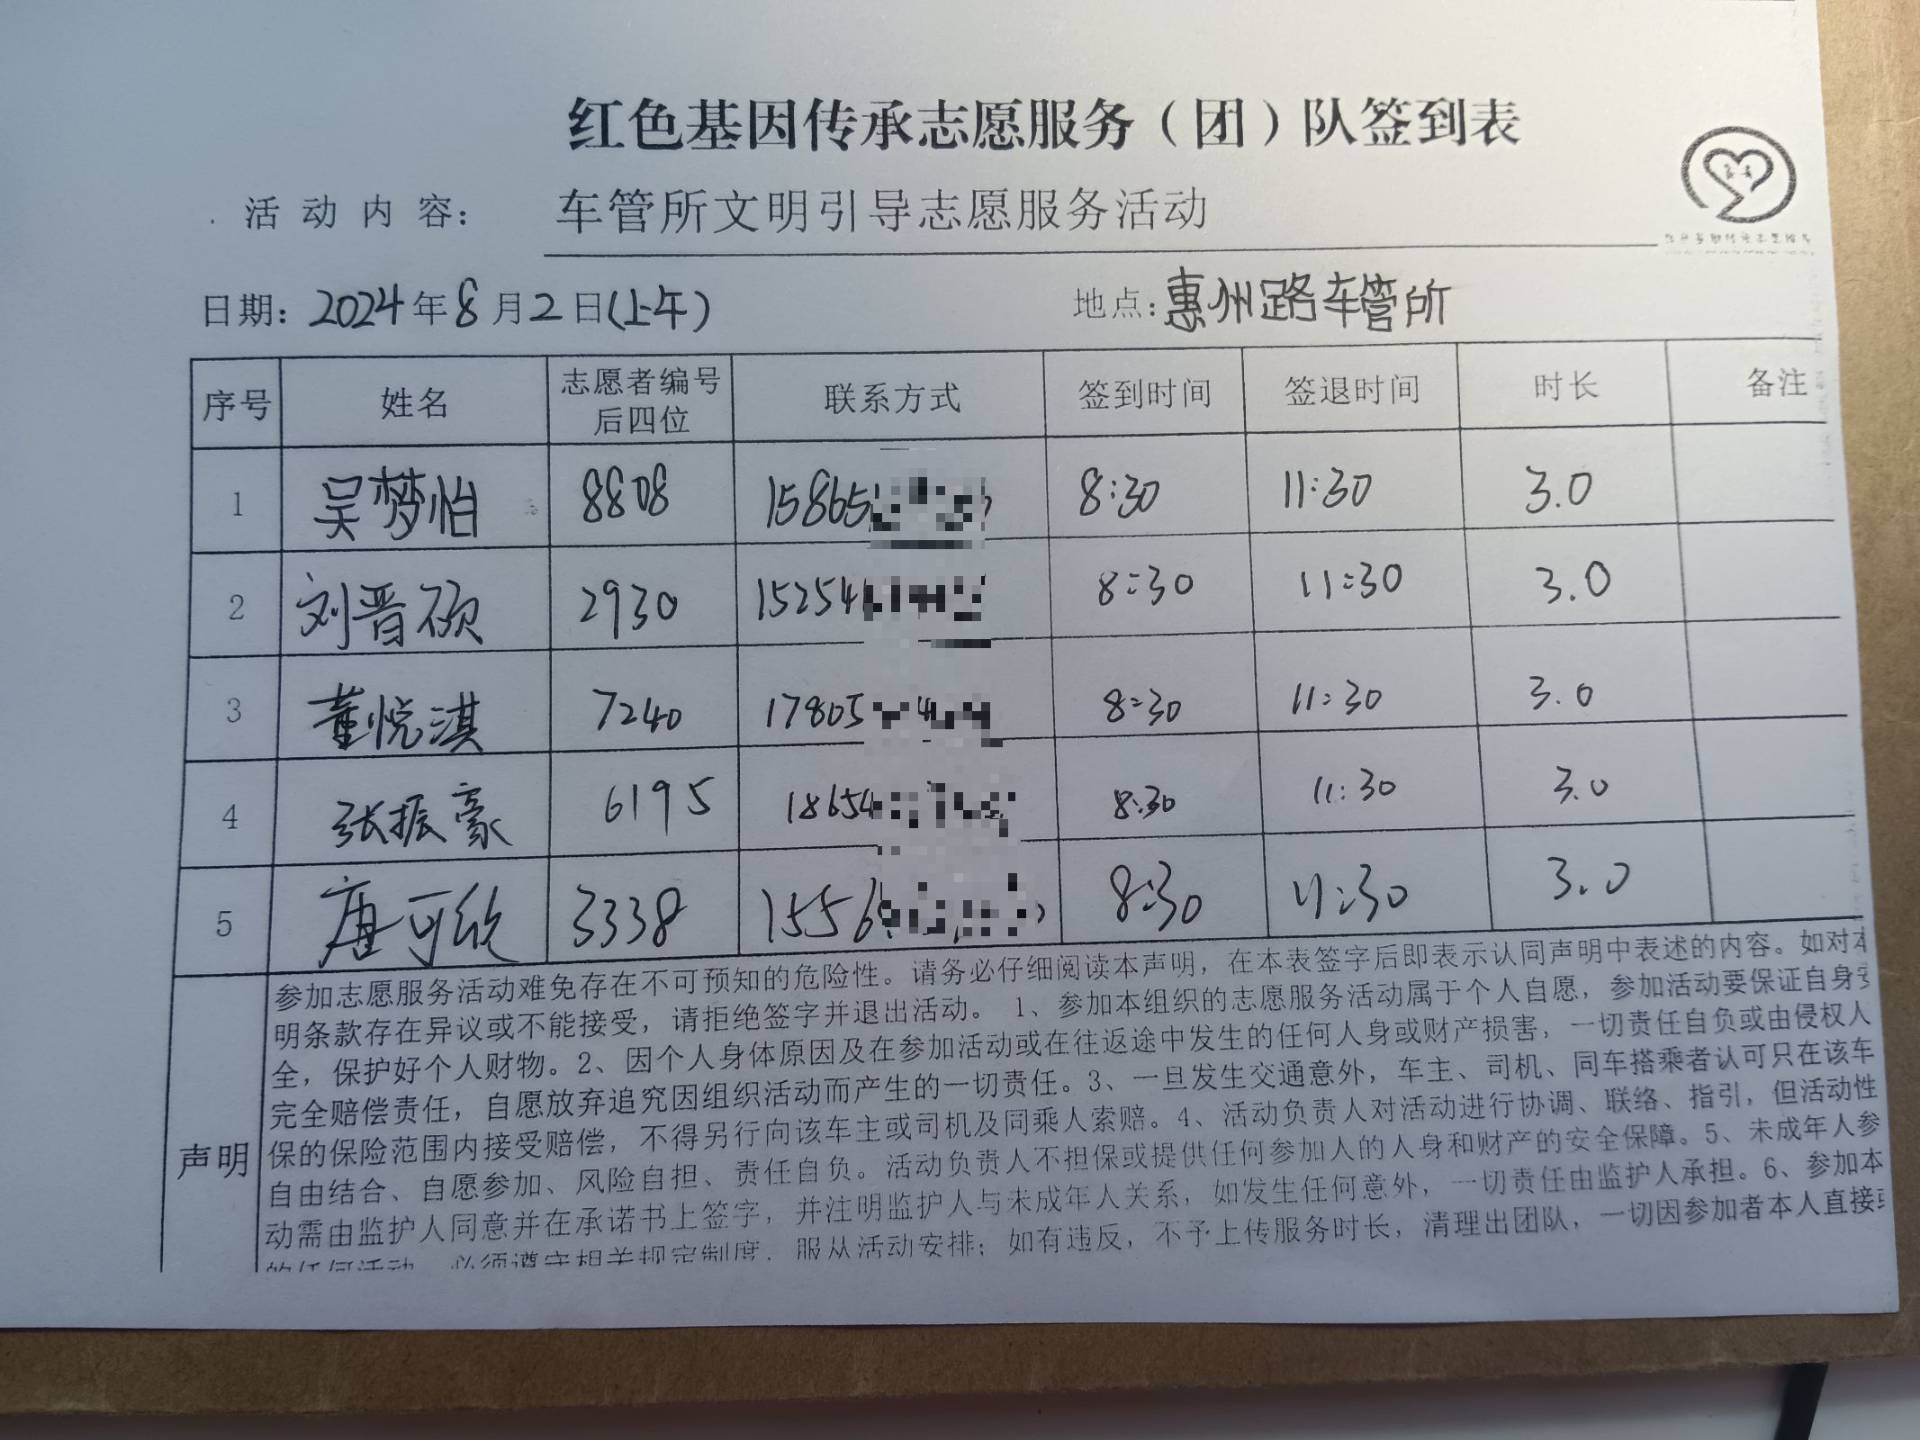 红色基因传承志愿服务（团）队签到表
活动内容： 车管所文明引导志愿服务活动
日期：2024年8月2日(上午) 地点：惠州路车管所
序号 姓名 志愿者编号后四位 联系方式 签到时间 签退时间 时长 备注
1 吴梦怡 8808 15865 8:30 11:30 3.0
2 刘晋硕 2930 15254 8:30 11:30 3.0
3 董悦淇 7240 17805 8:30 11:30 3.0
4 张振豪 6195 18654 8:30 11:30 3.0
5 唐可欣 3338 1556 8:30 11:30 3.0
声明
参加志愿服务活动难免存在不可预知的危险性。请务必仔细阅读本声明，在本表签字后即表示认同声明中表述的内容。如对本
明条款存在异议或不能接受，请拒绝签字并退出活动。 1、参加本组织的志愿服务活动属于个人自愿，参加活动要保证自身安
全，保护好个人财物。2、因个人身体原因及在参加活动或在往返途中发生的任何人身或财产损害，一切责任自负或由侵权人
完全赔偿责任，自愿放弃追究因组织活动而产生的一切责任。3、一旦发生交通意外，车主、司机、同车搭乘者认可只在该车
保的保险范围内接受赔偿，不得另行向该车主或司机及同乘人索赔。4、活动负责人对活动进行协调、联络、指引，但活动性
自由结合、自愿参加、风险自担、责任自负。活动负责人不担保或提供任何参加人的人身和财产的安全保障。5、未成年人参
动需由监护人同意并在承诺书上签字，并注明监护人与未成年人关系，如发生任何意外，一切责任由监护人承担。6、参加本
的任何活动，必须遵守相关规定制度，服从活动安排；如有违反，不予上传服务时长，清理出团队，一切因参加者本人直接或